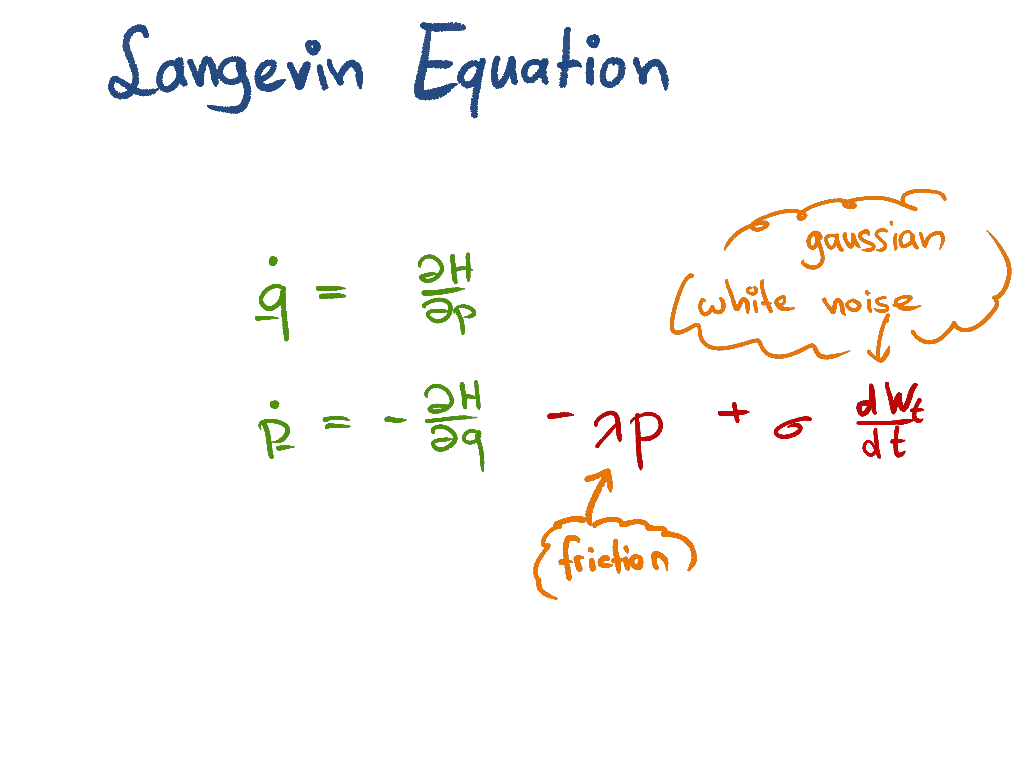 Langevin Equation
gaussian
white noise
q̇ = ∂H/∂p
ṗ = - ∂H/∂q - λp + σ dWₜ/dt
friction